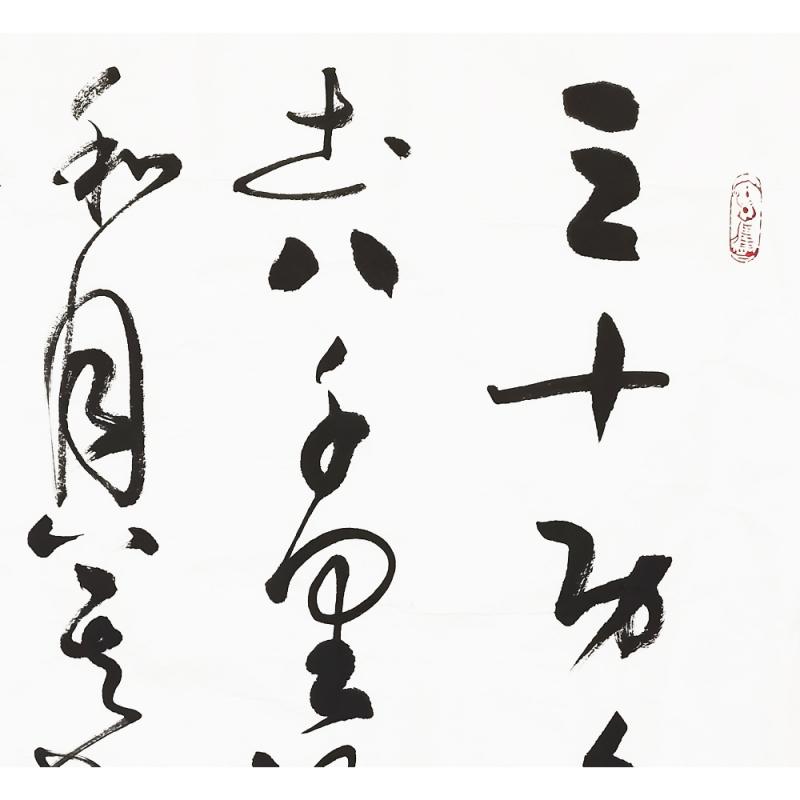 三十功
土八千里
和月莫